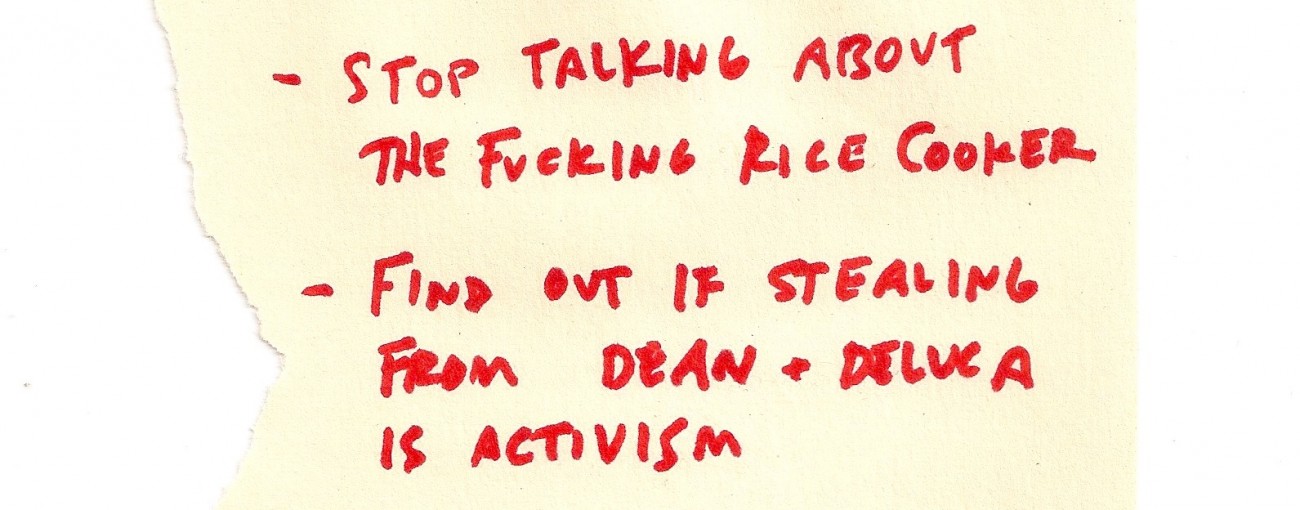 - STOP TALKING ABOUT
THE FUCKING RICE COOKER
- FIND OUT IF STEALING
FROM DEAN + DELUCA
IS ACTIVISM